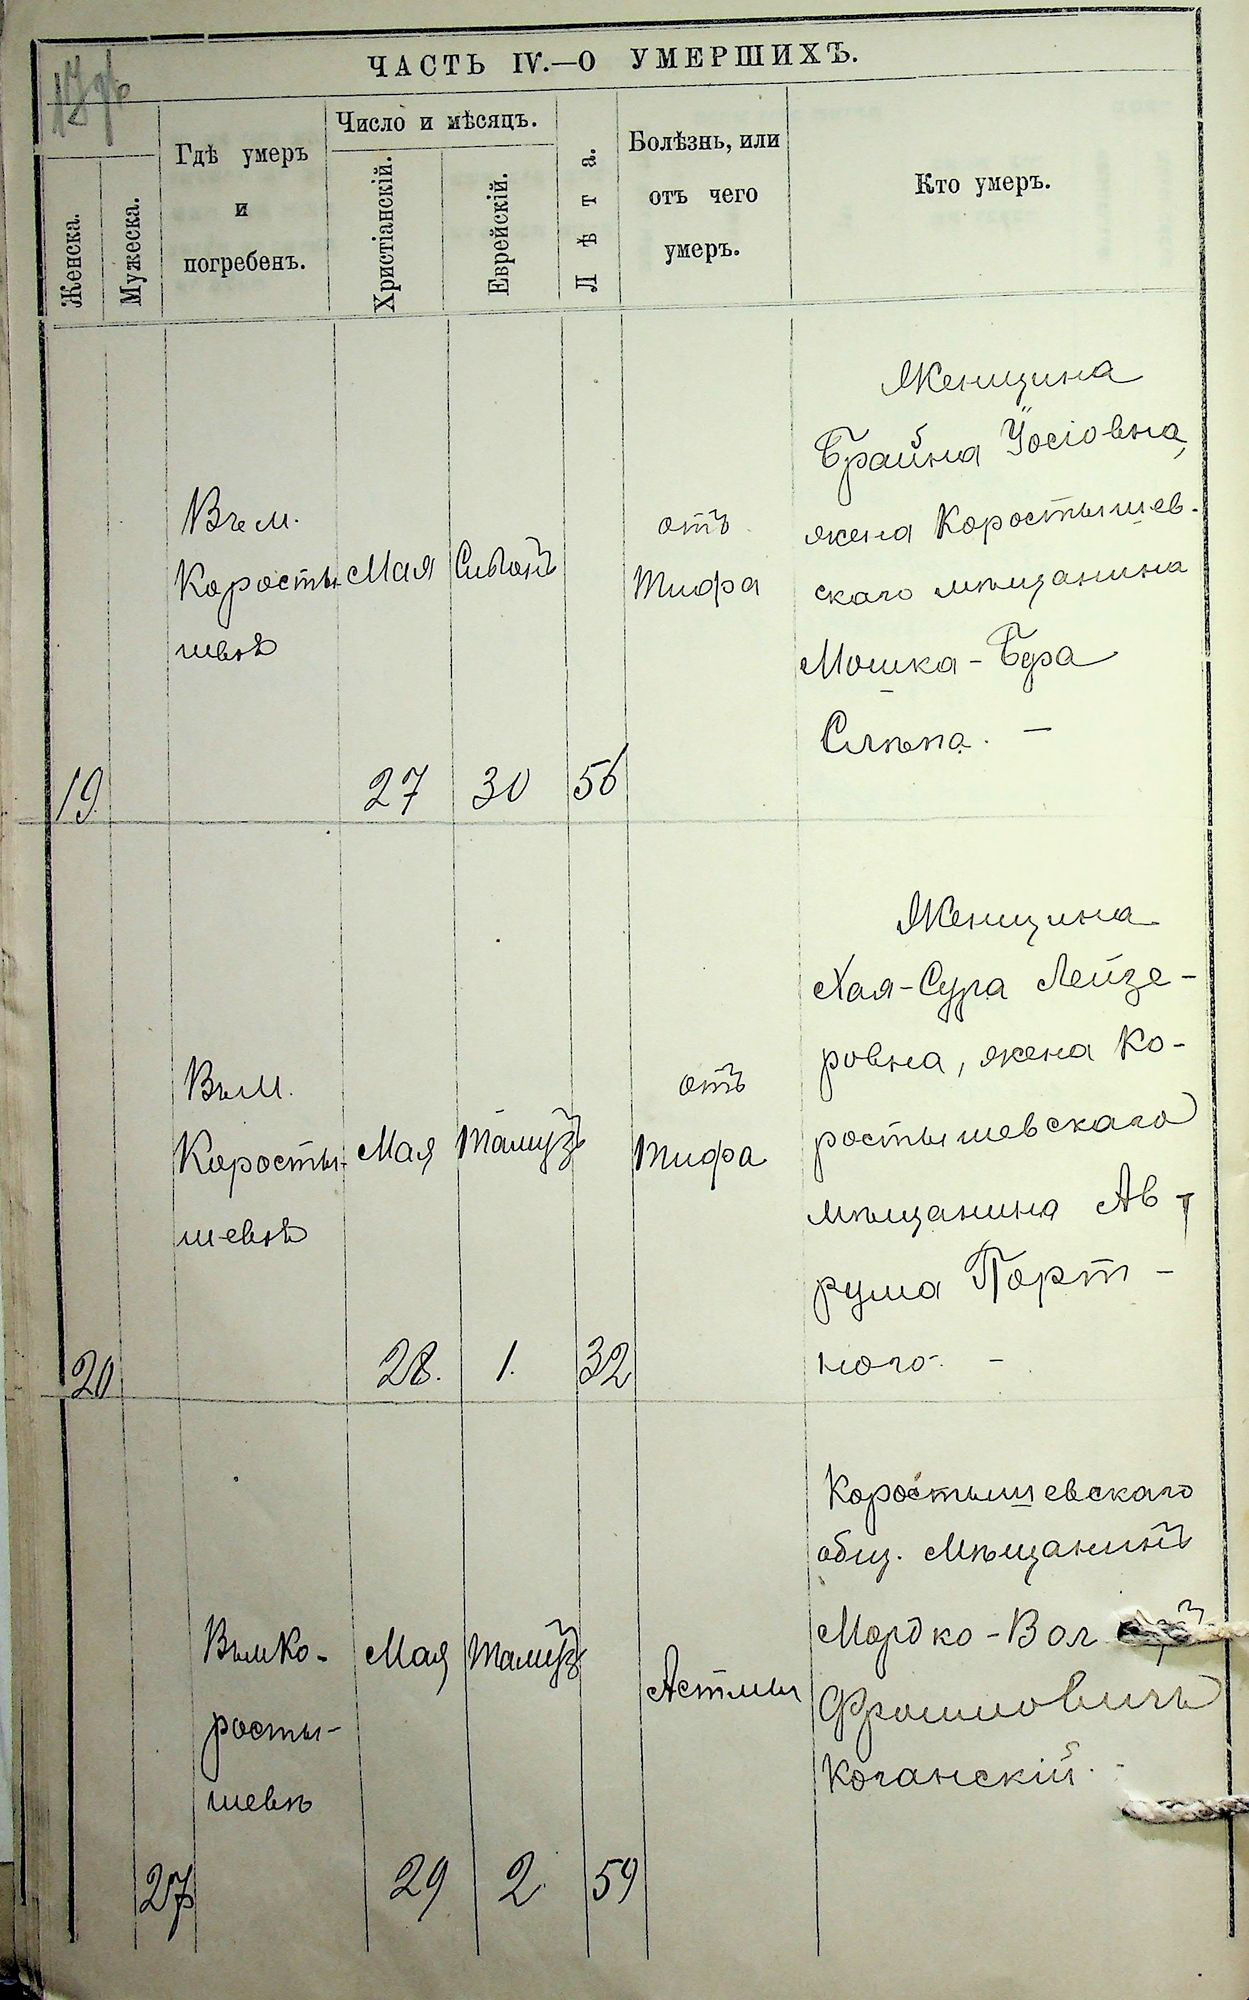 ЧАСТЬ IV.—О УМЕРШИХЪ.
Женска.
Мужеска.
Гдѣ умеръ
и
погребенъ.
Число и мѣсяцъ.
Христіанскій.
Еврейскій.
Лѣта.
Болѣзнь, или
отъ чего
умеръ.
Кто умеръ.
19
Въ м.
Коросты
шевѣ
Мая
27
Сиванъ
30
56
отъ
тифа
Женщина
Брайна Іосіовна,
жена Коростышев-
скаго мѣщанина
Мошка-Бера
Слѣпа. —
20
Въ м.
Коросты-
шевѣ
Мая
28.
Тамузъ
1.
32
отъ
тифа
Женщина
Хая-Сура Лейзе-
ровна, жена Ко-
ростышевскаго
мѣщанина Ав-
рума Порт-
ного. —
27
Въ м Ко-
росты-
шевѣ
Мая
29
Тамузъ
2
59
Астмы
Коростышевскаго
общ. мѣщанинъ
Мордко-Вол
Фроимовичъ
Коганскій.